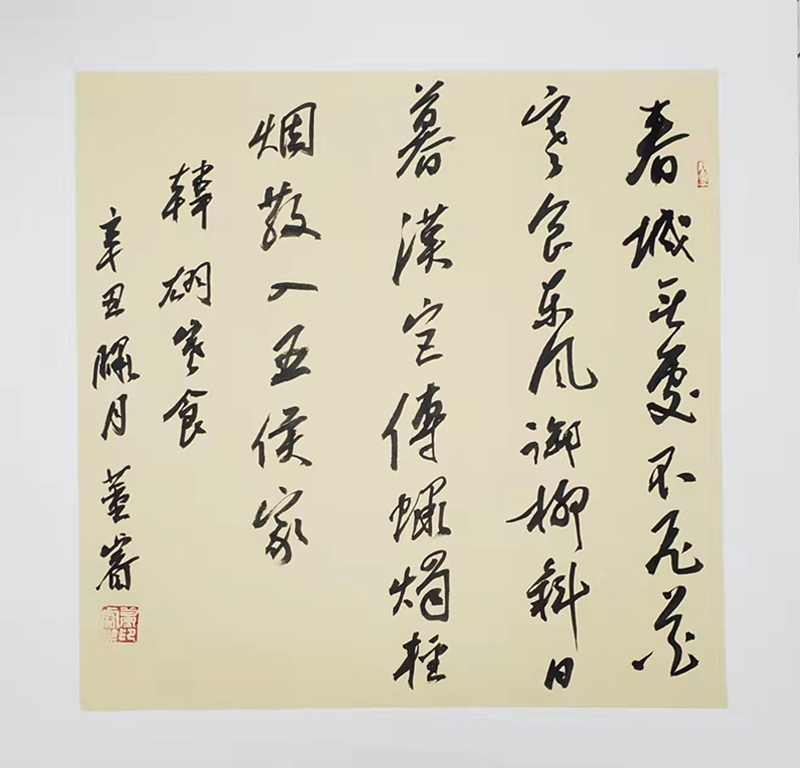 春城無處不飛花
寒食東風御柳斜日
暮漢宮傳蠟燭輕
烟散入五侯家
韓翃寒食
辛丑臘月董睿